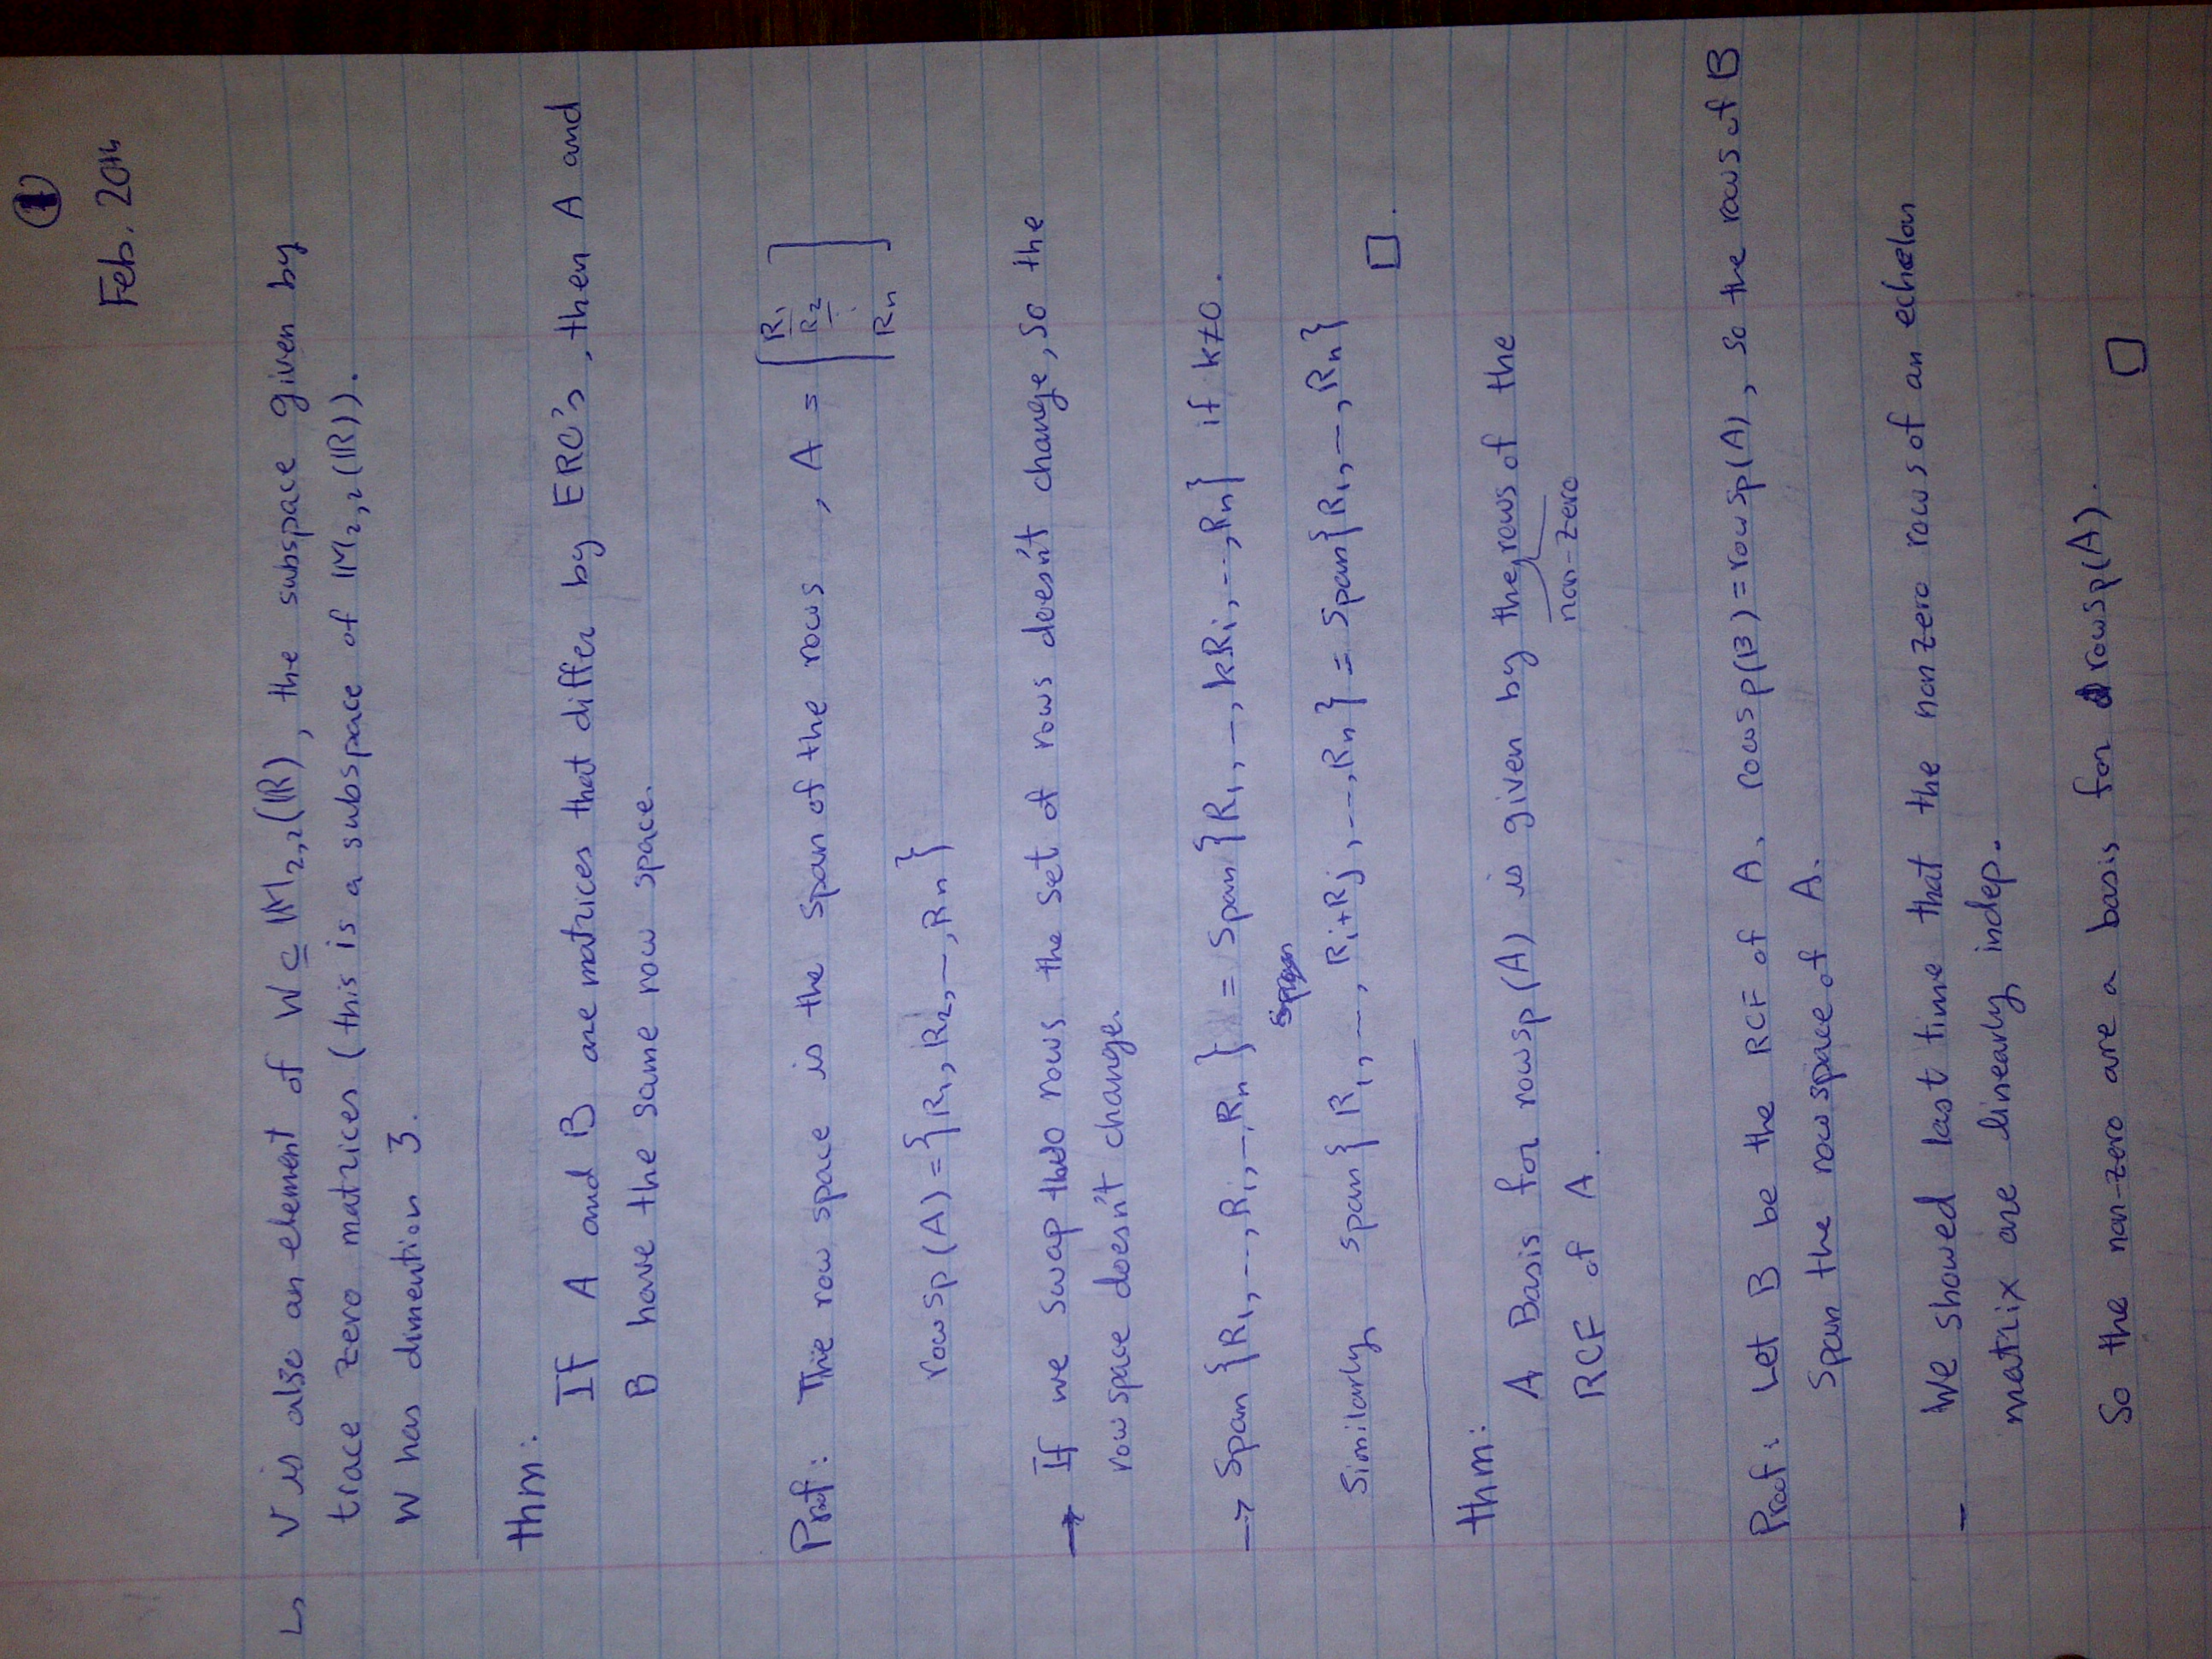 1
Feb. 20th
↳ V is also an element of W ⊆ M₂,₂(ℝ), the subspace given by
trace zero matrices (this is a subspace of M₂,₂(ℝ)).
W has dimention 3.
thm:
If A and B are matrices that differ by ERO's, then A and
B have the same row space.
Prof: The row space is the span of the rows , A = [R₁ R₂ ⋮ Rₙ]
rowsp(A) = {R₁, R₂, ..., Rₙ}
→ If we swap two rows the set of rows doesn't change, so the
row space doesn't change.
→ Span {R₁, ..., Rᵢ, ..., Rₙ} = Span {R₁, ..., kRᵢ, ..., Rₙ} if k≠0.
Similarly span{R₁, ..., Rᵢ+Rⱼ, ..., Rₙ} = Span{R₁, ..., Rₙ}
□.
thm:
A Basis for rowsp(A) is given by the non-zero rows of the
RCF of A.
Proof: Let B be the RCF of A. rowsp(B) = rowsp(A), so the rows of B
Span the row space of A.
– We showed last time that the non zero rows of an echelon
matrix are linearly indep.
So the non-zero are a basis for rowsp(A).
□